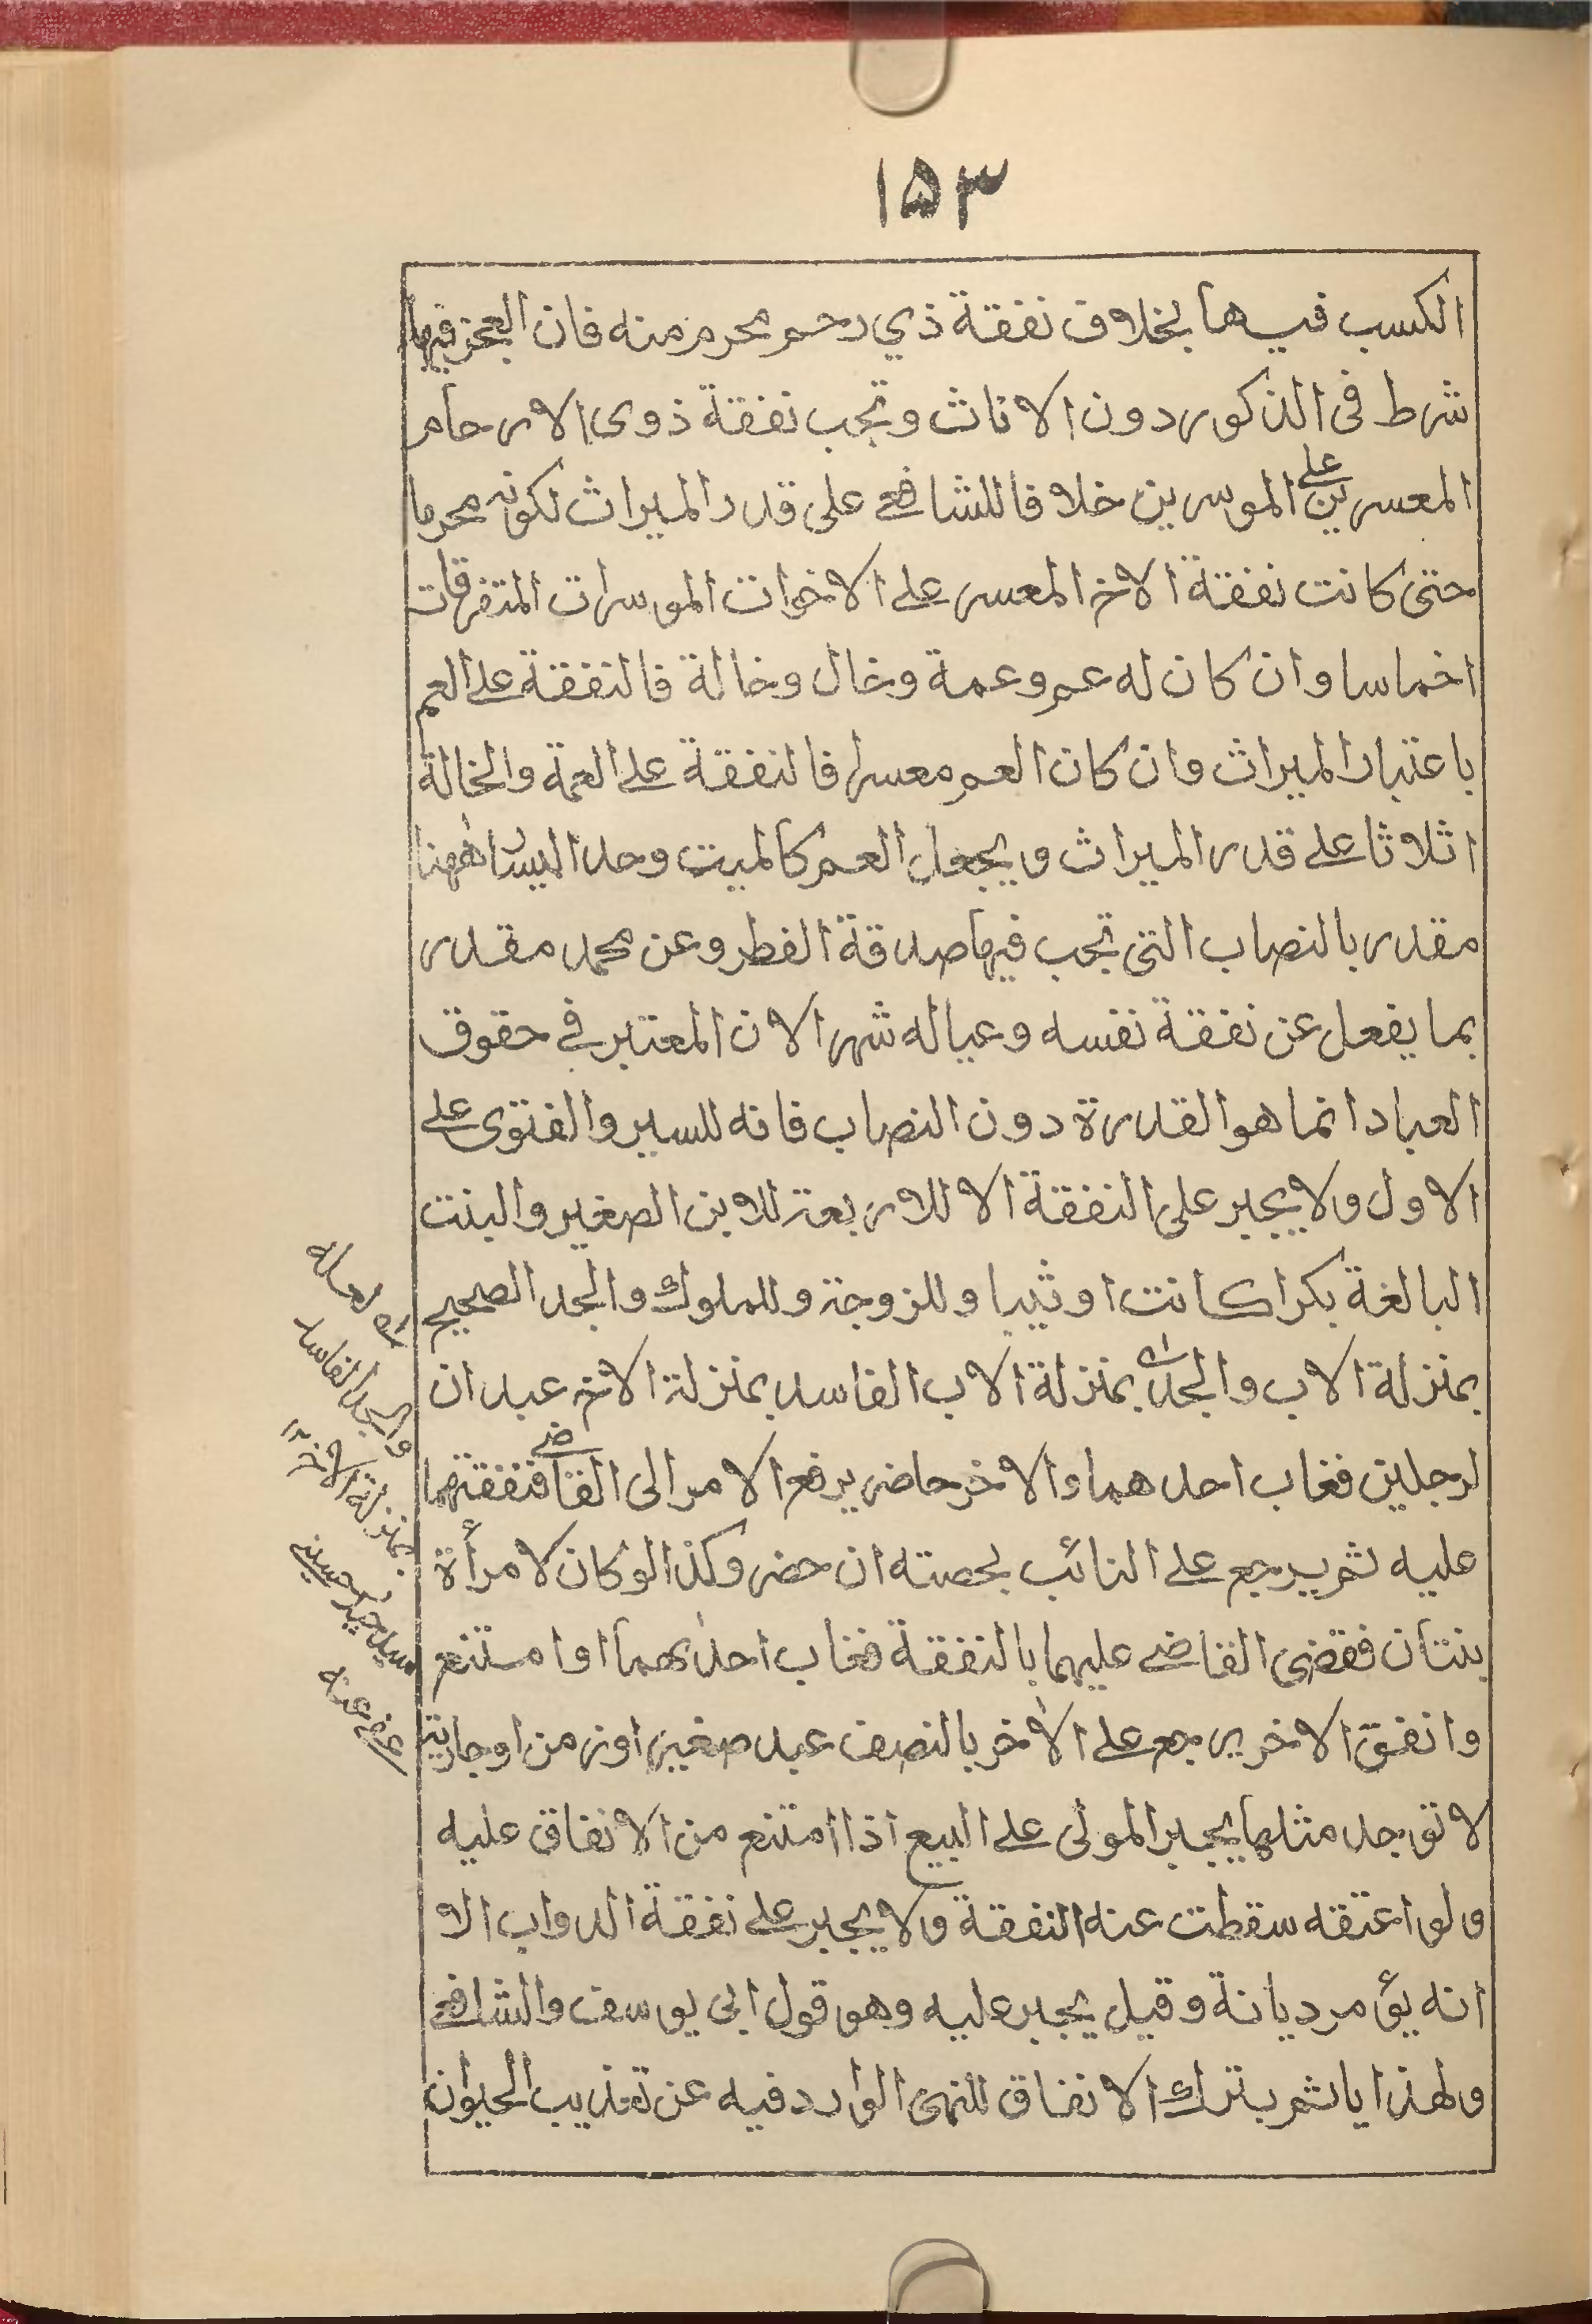 ١٥٣
الكسب فيها بخلاف نفقة ذي رحم محرم منه فان العجز فيها
شرط فى الذكور دون الاناث وتجب نفقة ذوى الارحام
المعسرين على الموسرين خلافا للشافعي على قدر الميراث لكونه محرما
حتى كانت نفقة الاخ المعسر على الاخوات الموسرات المتفرقات
اخماسا وان كان له عم وعمة وخال وخالة فالنفقة على العم
باعتبار الميراث وان كان العم معسرا فالنفقة على العمة والخالة
اثلاثا على قدر الميراث ويجعل العم كالميت وحد اليسار ههنا
مقدر بالنصاب التى تجب فيها صدقة الفطر وعن محمد مقدر
بما يفعل عن نفقة نفسه وعياله شهرا لان المعتبر في حقوق
العباد انما هو القدرة دون النصاب فانه للسير والفتوى على
الاول ولا يجبر على النفقة الا للاربعة للابن الصغير والبنت
البالغة بكرا كانت او ثيبا وللزوجة وللملوك والجد الصحيح
بمنزلة الاب والجد بمنزلة الاب الفاسد بمنزلة الاخ عبد ان
لرجلين فغاب احدهما والاخر حاضر يرفع الامر الى القاضي فنفقتهما
عليه ثم يرجع على النائب بحصته ان حضر وكذا لو كان لامرأة
بنتان فقضى القاضي عليهما بالنفقة فغاب احدىهما او امتنع
وانفق الاخر يرجع على الاخر بالنصف عبد صغير او زمن او جارية
لا توجد مثلها يجبر المولى على البيع اذا امتنع من الانفاق عليه
ولو اعتقه سقطت عنه النفقة ولا يجبر على نفقة الدواب الا
انه يؤمر ديانة وقيل يجبر عليه وهو قول ابى يوسف والشافعي
ولهذا ياثم بترك الانفاق للنهى الوارد فيه عن تعذيب الحيوان
والجد الفاسد
بمنزلة الاخ
سيد حيدر حسيني
عفي عنه